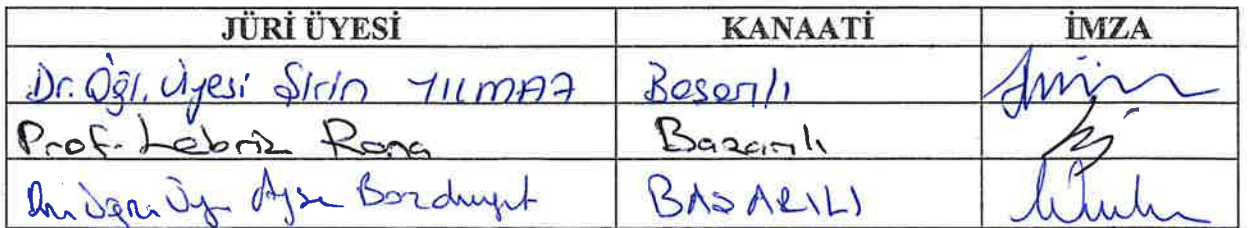 JÜRİ ÜYESİ KANAATİ İMZA
Dr. Öğl. Üyesi Şirin YILMAZ Başarılı
Prof. Lebriz Rona Başarılı
Ayşe Bozduyut BAŞARILI